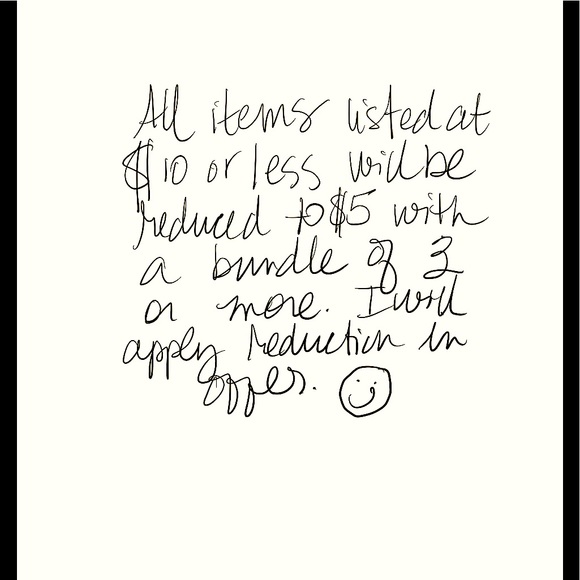 All items listed at
$10 or less will be
reduced to $5 with
a bundle of 3
or more. I will
apply reduction in
offer.